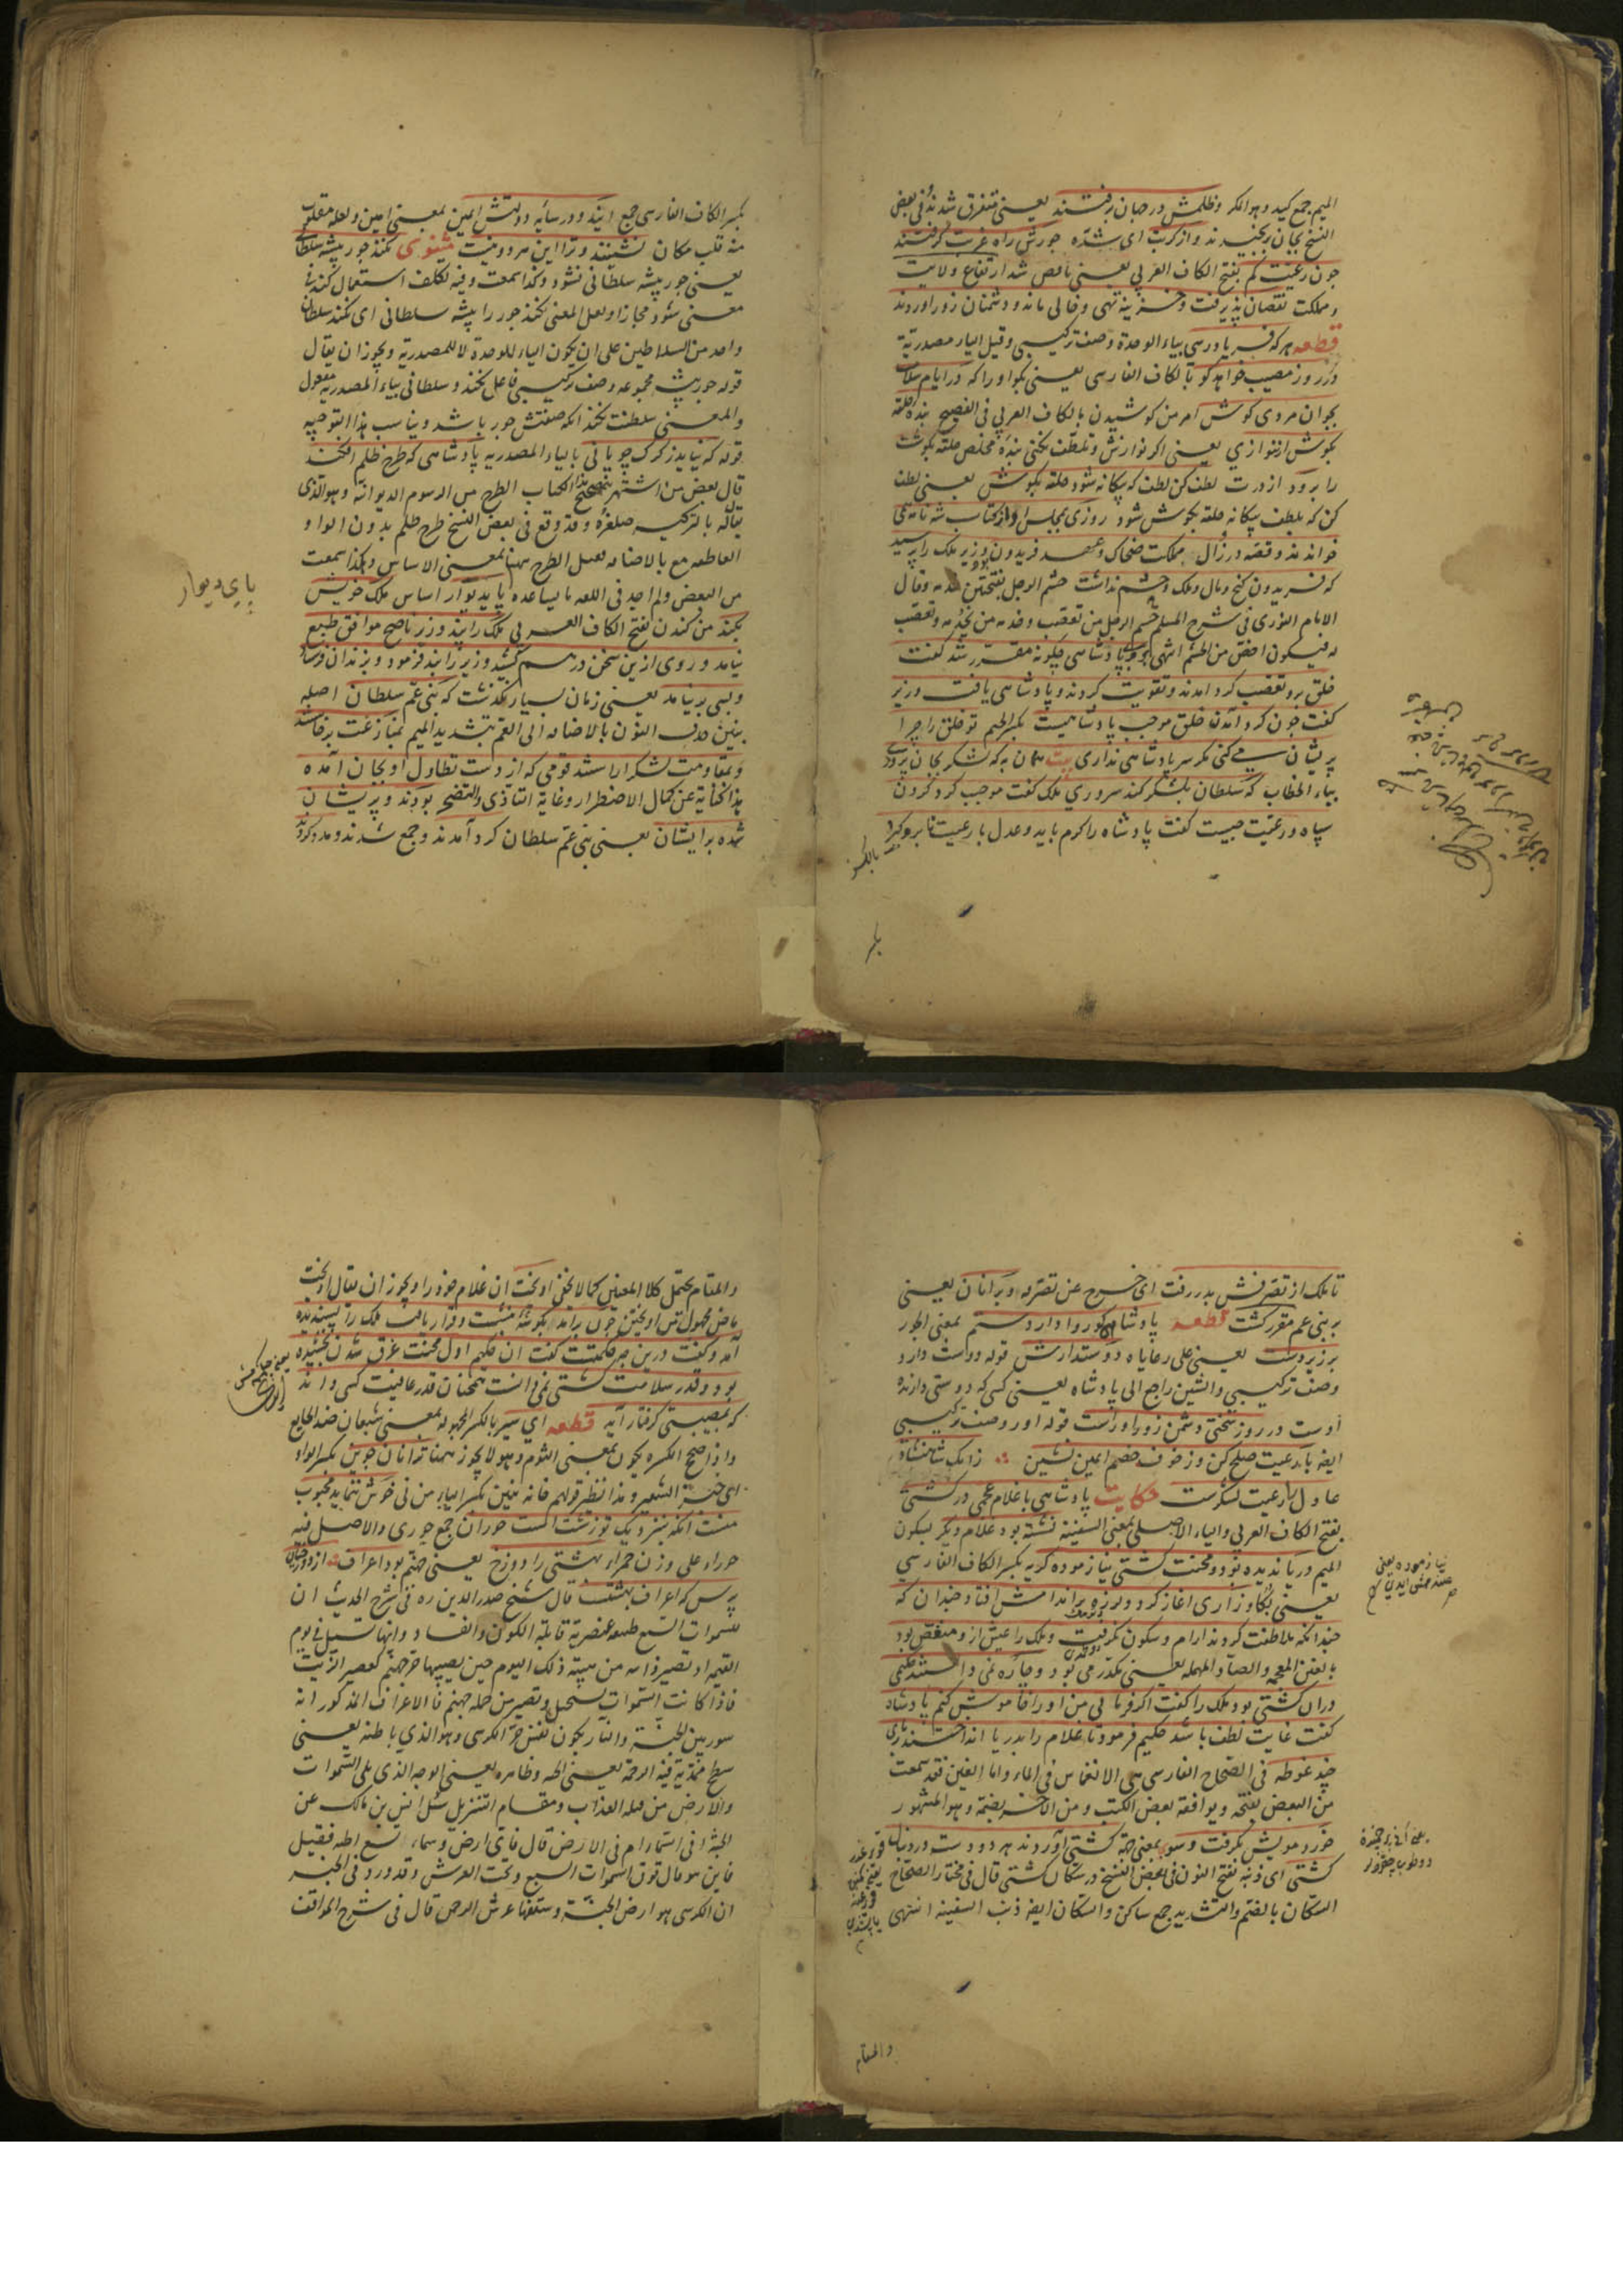 الميم جمع كيد وهو المكر وظلمش در جهان برفتند يعنى متفرق شدند وفى بعض
النسخ بجان برنجيدند واز كربت اى شده جورش راه غربت گرفتند
چون رعيت كم بفتح الكاف العربى يعنى ناقص شد ارتفاع ولايت
ومملكت نقصان پذيرفت وخزينه تهى وخالى ماند ودشمنان زور اوردند
قطعه هر كه فريادرسى بياء الوحدة وصف تركيبى وقيل الياء مصدرية
در روز مصيبت خواهد گو بالكاف الفارسى يعنى بگو اورا كه در ايام سلامت
بجوانمردى كوش امر من كوشيدن بالكاف العربى فى الفصيح بنده حلقه
بگوش ار ننوازى يعنى اگر نوازش وتلطف نكنى بنده مخلص حلقه بگوشت
را برود از درت لطف كن لطف كه بيگانه شود حلقه بگوش يعنى لطف
كن كه بلطف بيگانه حلقه بگوش شود روزى بمجلس او از كتاب شه نامه مى
خواندند وقصه در زوال مملكت ضحاك وعهد فريدون وزير ملك را پرسيد
كه فريدون گنج ومال وملك وحشم نداشت حشم الرجل بفتحتين خدمه وقال
الامام النووى فى شرح المسلم حشم الرجل من تعصب وخدمه من يخدمه وتعصب
له فيكون اخص من الحشم انتهى پادشاهى چگونه مقرر شد گفت
خلق برو بتعصب گرد آمدند وتقويت كردند وپادشاهى يافت وزير
گفت چون گرد آمدن خلق موجب پادشاهيست بكسر الجيم تو خلق را چرا
پريشان مى كنى مگر سر پادشاهى ندارى بيت همان به كه لشكر بجان پرورى
بياء الخطاب كه سلطان بلشكر كند سرورى ملك گفت موجب گرد كردن
سپاه ورعيت چيست گفت پادشاه را كرم بايد وعدل با رعيت تا برو گرد
بكسر الكاف الفارسى جمع آيند ودر سايه دولتش ايمن بمعنى امين ولعله مقلوب
منه قلب مكان نشينند وترا اين هر دو نيست مثنوى نكند جور پيشه سلطانى
يعنى جور پيشه سلطانى نشود وكذا سمعت وفيه تكلف استعمال كند فى
معنى شود مجازا ولعل المعنى نكند جور را پيشه سلطانى اى نكند سلطان
واحد من السلاطين على ان يكون الياء للوحدة لا للمصدرية ويجوز ان يقال
قوله جور پيشه مجموعه وصف تركيبى فاعل نكند وسلطانى بياء المصدرية مفعول
والمعنى سلطنت نكند آنكه صفتش جور باشد ويناسب هذا التوجيه
قوله كه نيايد ز گرگ چوپانى بالياء المصدرية پادشاهى كه طرح ظلم افكند
قال بعض من اشتهر بتصحيح هذا الكتاب الطرح من الرسوم الديوانية وهو الذى
يقال له بالتركية صلغره وقد وقع فى بعض النسخ طرح ظلم بدون الواو
العاطفة مع بالاضافة لعل الطرح ههنا بمعنى الاساس وكذا سمعت
من البعض ولم اجد فى اللغة ما يساعده پاى ديوار اساس ملك خويش
بكند من كندن بفتح الكاف العربى ملك را پند وزير ناصح موافق طبع
نيامد وروى ازين سخن درهم كشيد وزير را بند فرمود وبزندان فرستاد
وبسى برنيامد يعنى زمان بسيار نگذشت كه بنى عم سلطان اصله
بنين حذف النون بالاضافة الى العم بتشديد الميم بمنازعت برخاستند
وبمقاومت لشكر آراستند قومى كه از دست تطاول او بجان آمده
هذا كناية عن كمال الاضطرار وغاية التأذى والتضجر بودند وپريشان
شده بر ايشان يعنى بنى عم سلطان گرد آمدند وجمع شدند ومدد كردند
پاى ديوار
تا ملك از تصرفش بدر رفت اى خرج عن تصرفه وبر آنان يعنى
بر بنى عم مقرر گشت قطعه پادشاهى كو روا دارد ستم بمعنى الجور
بر زيردست يعنى على رعاياه دوستدارش قوله دوست دار
وصف تركيبى والشين راجع الى پادشاه يعنى كسى كه دوستى دارنده
اوست در روز سختى دشمن زورآورست قوله آور وصف تركيبى
ايضا با رعيت صلح كن وز خوف خصم ايمن نشين زانك شاهنشاه
عادل را رعيت لشكرست حكايت پادشاهى با غلام عجمى در كشتى
بفتح الكاف العربى والياء الاصلى بمعنى السفينة نشسته بود غلام ديگر بسكون
الميم دريا نديده بود ومحنت كشتى نيازموده گريه بكسر الكاف الفارسى
يعنى بكاء وزارى آغاز كرد ولرزه بر اندامش افتاد چندان كه
چندانكه ملاطفت كردند آرام وسكون نگرفت وملك را عيش ازو منغص بود
بالغين المعجمة والصاد المهملة يعنى مكدر مى بود وچاره نمى دانستند حكيمى
در آن كشتى بود ملك را گفت اگر فرمايى من او را خاموش كنم پادشاه
گفت غايت لطف باشد حكيم فرمود تا غلام را بدريا انداختند بارى
چند غوطه فى الصحاح الفارسى هى الانغماس فى الماء واما الغين فقد سمعت
من البعض بفتحه ويوافقه بعض الكتب ومن الآخر بضمه وهو المشهور
خورد مويش بگرفت وسوى بمعنى جهة كشتى آوردند هر دو دست در دنبال
كشتى اى ذنبه بفتح النون فى بعض النسخ در سكان كشتى قال فى مختار الصحاح
السكان بالضم والتشديد جمع ساكن والسكان ايضا ذنب السفينة انتهى
والمقام
والمقام يحتمل كلا المعنيين كما لا يخفى آويخت آن غلام خود را ويجوز ان يقال آويخت
ماض مجهول من آويختن چون برآمد بگوشه بنشست وقرار يافت ملك را پسنديده
آمد وگفت درين چه حكمتست گفت آن حكيم اول محنت غرق شدن نچشيده
بود وقدر سلامت كشتى نمى دانست همچنان قدر عافيت كسى داند
كه بمصيبتى گرفتار آيد قطعه اى سير بالكسر المجهولة بمعنى شبعان ضد الجايع
واذا صح الكسرة يكون بمعنى الثوم وهو لا يجوز ههنا ترا نان جوين بكسر الواو
اى خبز الشعير وهذا نظير قولهم فانه نبين بكسر الياء من نى خوش ننمايد محبوب
منست آنكه بنزديك تو زشتست حوران جمع حورى والاصل فيه
حوراء على وزن حمراء بهشتى را دوزخ يعنى جهنم بود اعراف از دوزخيان
پرس كه اعراف بهشتست قال شيخ صدر الدين ره فى شرح الحديث ان
للسموات السبع طبيعة عنصرية قابلة الكون والفساد وانها تستحيل فى يوم
فاذا كانت السموات تستحيل وتصير من جملة جهنم فالاعراف المذكور انه
سور بين الجنة والنار يكون نفس جرم الكرسى وهو الذى باطنه يعنى
سطح محدبه فيه الرحمة يعنى الجنة وظاهره يعنى الوجه الذى يلى السموات
والارض من قبله العذاب ومقام التنزيل سئل انس بن مالك عن
الجنة افى السماء ام فى الارض قال فاى ارض وسماء تسع الجنة فقيل
فاين هو قال فوق السموات السبع وتحت العرش وقد ورد فى الخبر
ان الكرسى هو ارض الجنة وسقفها عرش الرحمن قال فى شرح المواقف